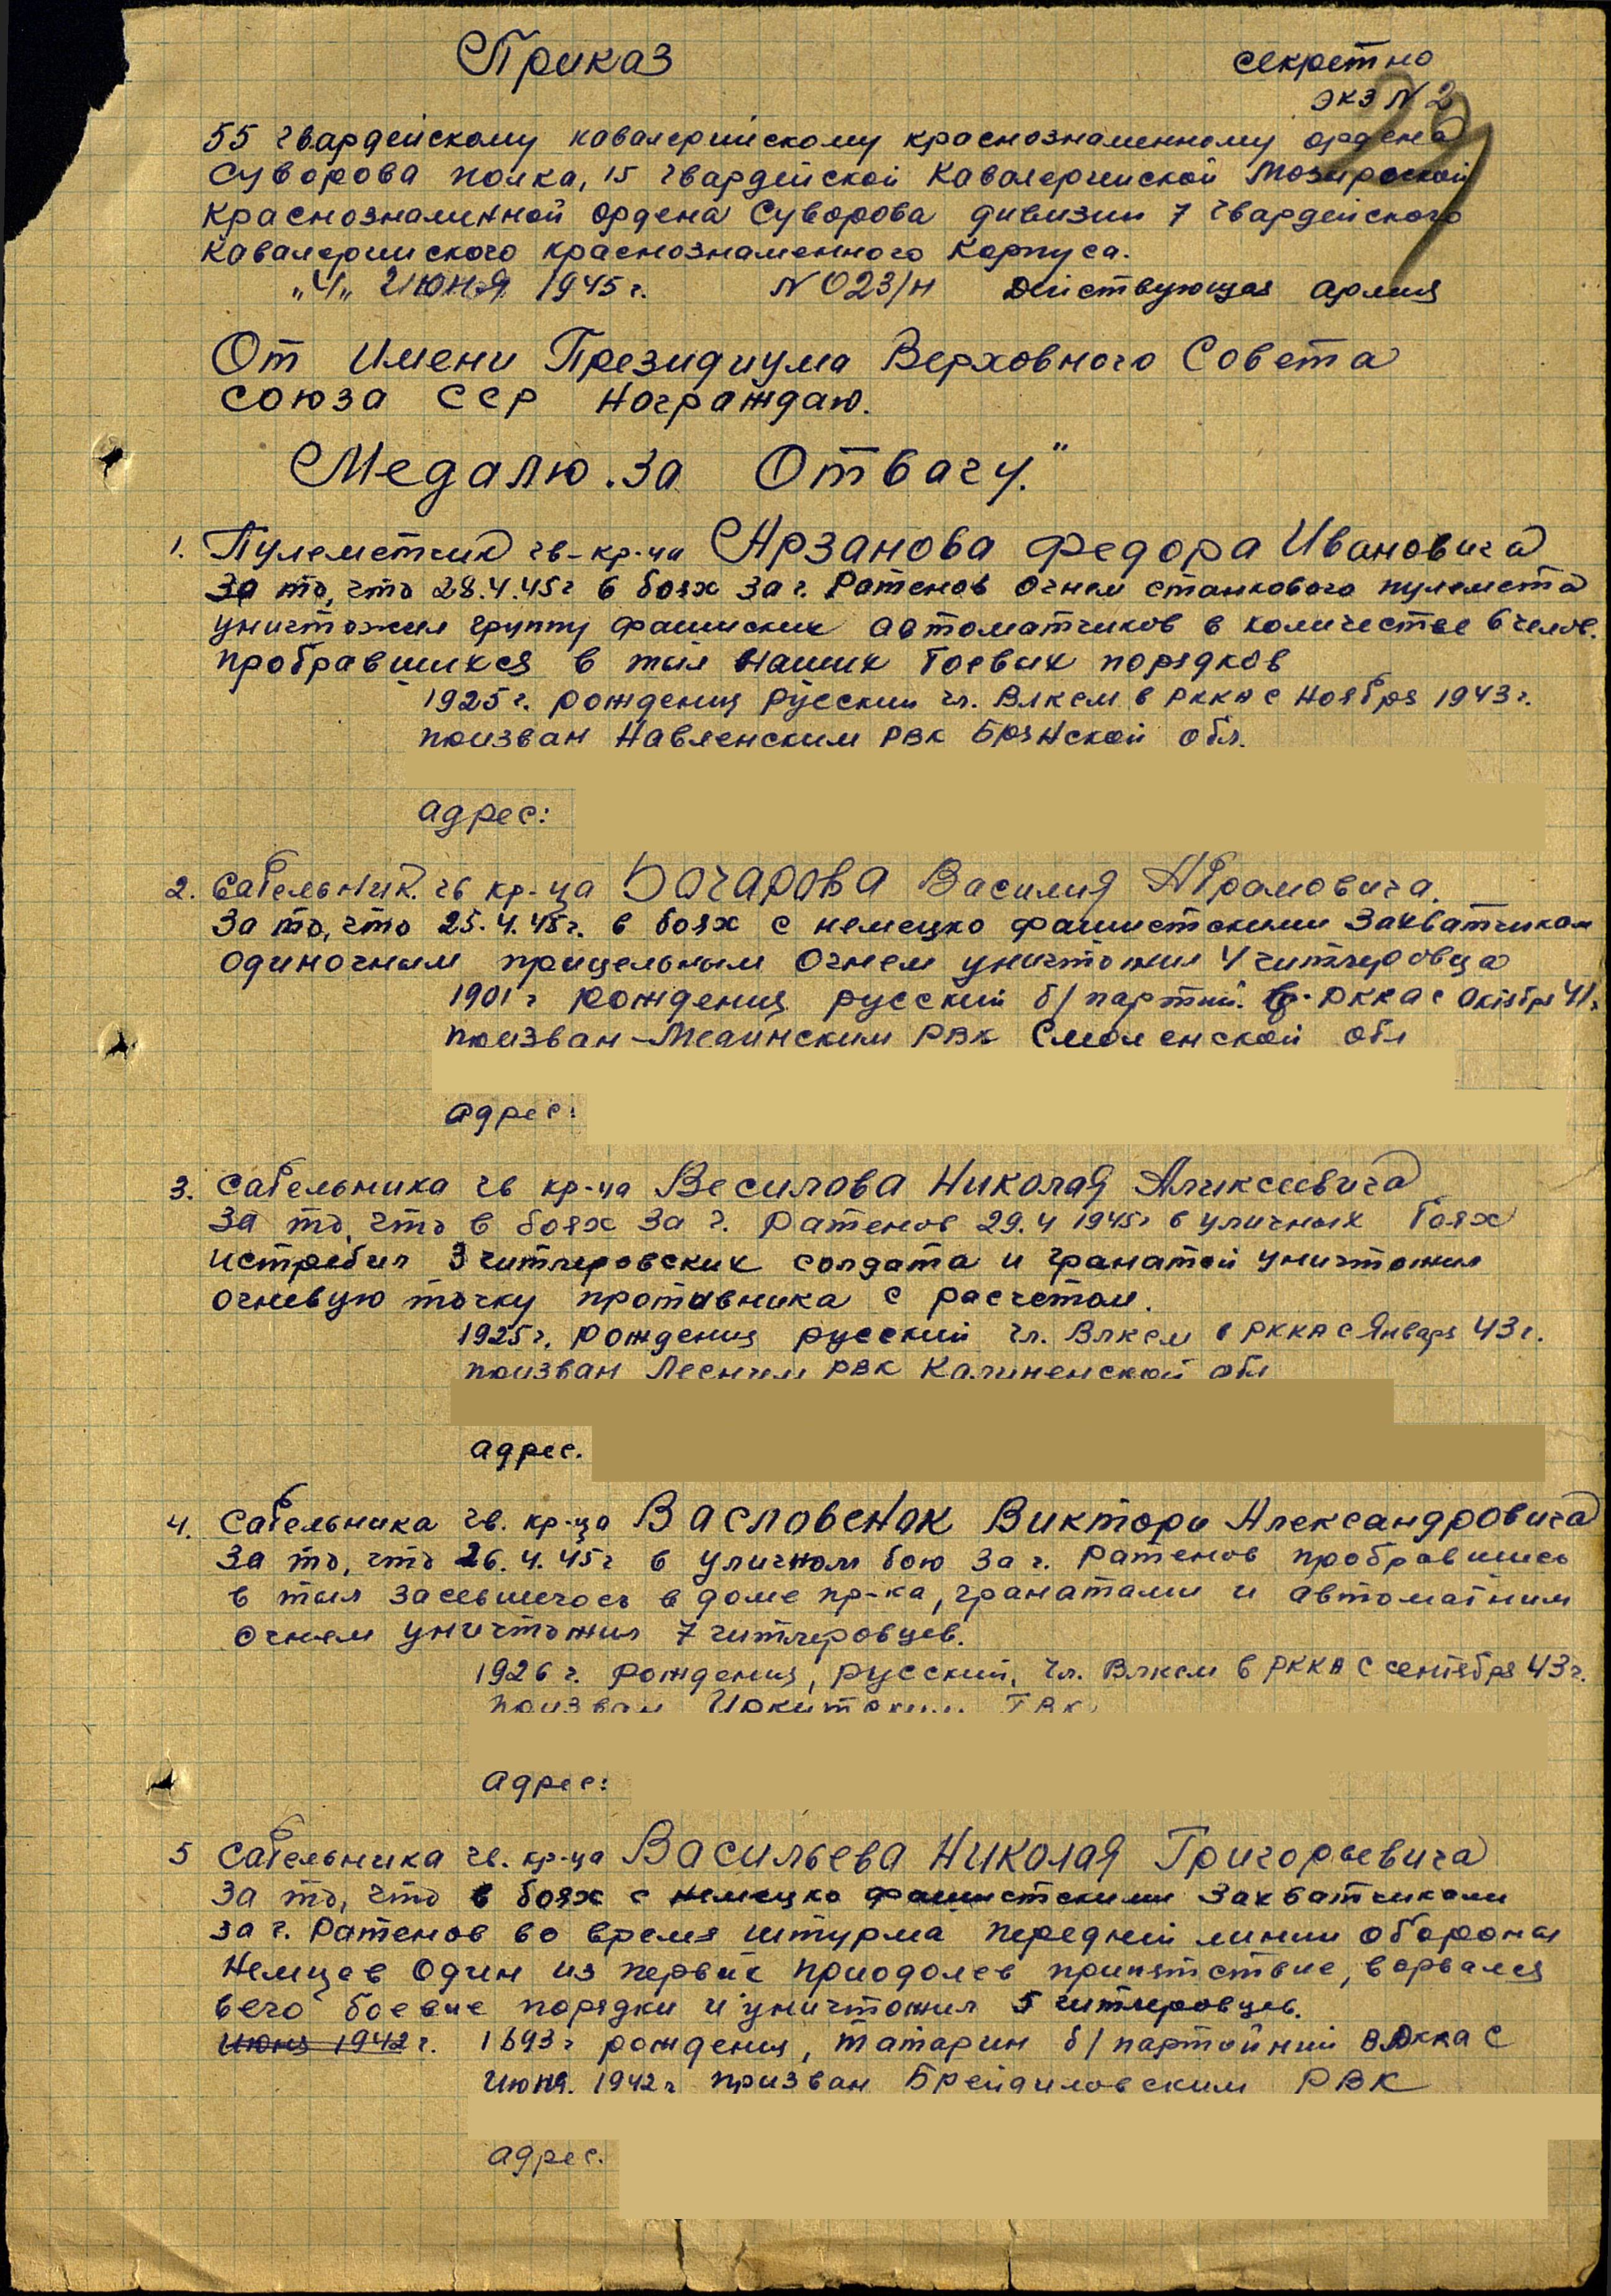 Приказ
секретно
экз N 2
55 гвардейскому кавалерийскому краснознаменному ордена
Суворова полка, 15 гвардейской Кавалерийской Мозырской
краснознаминной ордена Суворова дивизии 7 гвардейского
Кавалерийского краснознаменного Корпуса.
"4" Июня 1945 г. N 023/н Действующая армия
От имени Президиума Верховного Совета
союза ССР награждаю.
Медалю "За Отвагу."
1. Пулеметчик гв-кр-ца Арзанова Федора Ивановича
За то, что 28.4.45г в боях за г. Ратенов огнем станкового пулемета
уничтожил группу фашиских автоматчиков в количестве 6 челов.
пробравшихся в тыл наших боевых порядков
1925 г. рождения русский чл. Влксм в РККА с ноября 1943 г.
призван Навленским РВК Брянской обл.
адрес:
2. Сабельник. гв кр-ца Бочарова Василия Абрамовича.
За то, что 25.4.45г. в боях с немецко фашистскими захватчикам
одиночным прицельным огнем уничтожил 4 гитлеровца
1901 г рождения русский б/партий. в РККА с октября 41г
призван-Мединским РВК Смоленской обл
адрес:
3. Сабельника гв кр-ца Весилова Николая Аликсеевича
За то, что в боях за г. Ратенов 29.4 1945г в уличных боях
истребил 3 гитлеровских солдата и гранатой уничтожил
огневую точку противника с расчетом.
1925 г. рождения русский чл. Влксм в РККА с Января 43 г.
призван Лесным РВК Калиненской обл
адрес.
4. Сабельника гв. кр-ца Васловенок Виктора Александровича
За то, что 26.4.45г в уличном бою за г. Ратенов пробравшись
в тыл засевшегось в доме пр-ка, гранатами и автоматным
огнем уничтожил 7 гитлеровцев.
1926 г. рождения, русский, чл. Влксм в РККА с сентября 43 г.
призван Иркутским ГВК
адрес:
5 Сабельника гв. кр-ца Васильева Николая Григорьевича
За то, что в боях с немецко фашистскими захватчиками
за г. Ратенов во время штурма передней линии обороны
Немцев один из первых приодолев припятствие, ворвался
вего боевые порядки и уничтожил 5 гитлеровцев.
июня 1942 г. 1893 г рождения, татарин б/партойний в РККА с
июня. 1942 г призван Брейдиловским РВК
адрес.